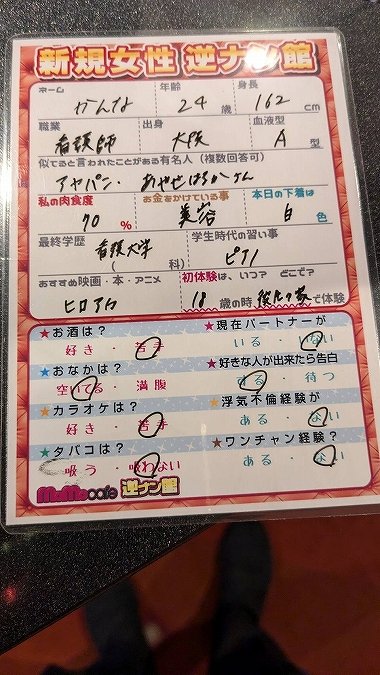 新規女性 逆ナン館
ネーム 年齢 身長
かんな 24歳 162cm
職業 出身 血液型
看護師 大阪 A型
似てると言われたことがある有名人（複数回答可）
アヤパン・あやせはるか・けん
私の肉食度 お金をかけている事 本日の下着は
70% 美容 白色
最終学歴 学生時代の習い事
看護大学 ピアノ
（ 科）
おすすめ映画・本・アニメ 初体験は、いつ？ どこで？
ヒロアカ 18歳の時 彼氏の家で体験
★お酒は？ ★現在パートナーが
好き・苦手 いる・ない
★おなかは？ ★好きな人が出来たら告白
空いてる・満腹 する・待つ
★カラオケは？ ★浮気不倫経験が
好き・苦手 ある・ない
★タバコは？ ★ワンチャン経験？
吸う・吸わない ある・ない
MoMo cafe 逆ナン館